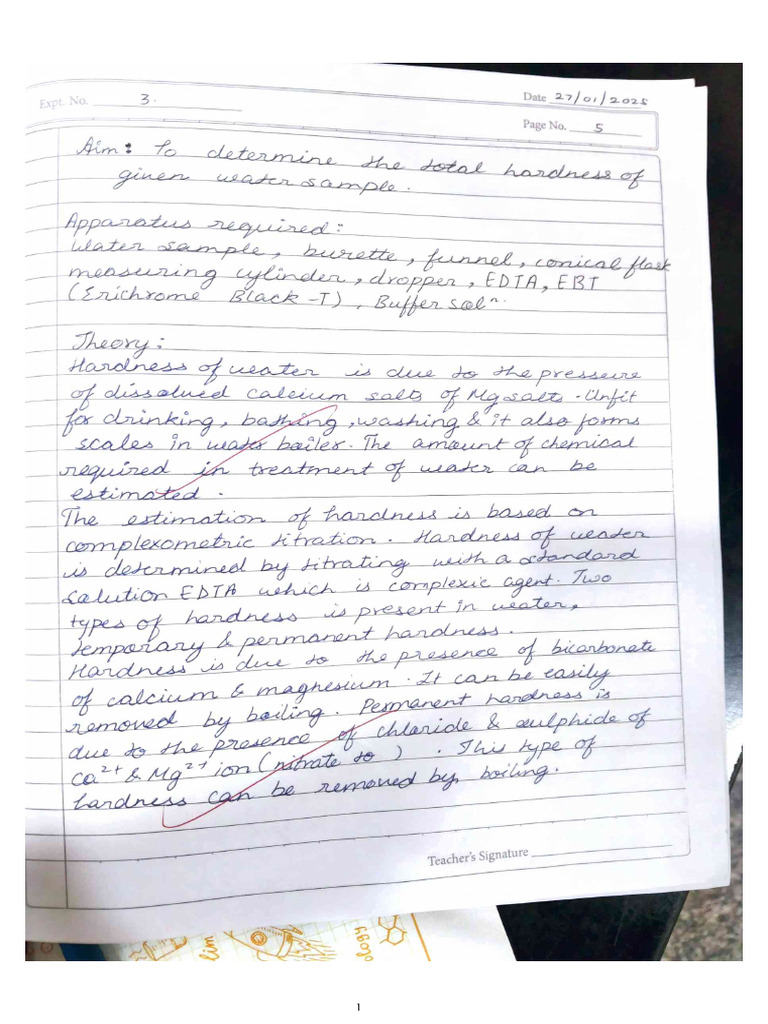 Expt. No. 3.
Date 27/01/2025
Page No. 5
Aim: To determine the total hardness of
given water sample.
Apparatus required:
Water sample, burette, funnel, conical flask
measuring cylinder, dropper, EDTA, EBT
(Erichrome Black-T), Buffer solⁿ.
Theory:
Hardness of water is due to the pressure
of dissolved calcium salts of Mg salts. Unfit
for drinking, bathing, washing & it also forms
scales in water boiler. The amount of chemical
required in treatment of water can be
estimated.
The estimation of hardness is based on
complexometric titration. Hardness of water
is determined by titrating with a standard
solution EDTA which is complexic agent. Two
types of hardness is present in water,
temporary & permanent hardness.
Hardness is due to the presence of bicarbonate
of calcium & magnesium. It can be easily
removed by boiling. Permanent hardness is
due to the presence of chloride & sulphide of
Ca²⁺ & Mg²⁺ ion (nitrate to). This type of
hardness can be removed by boiling.
Teacher's Signature
lim
ology
1